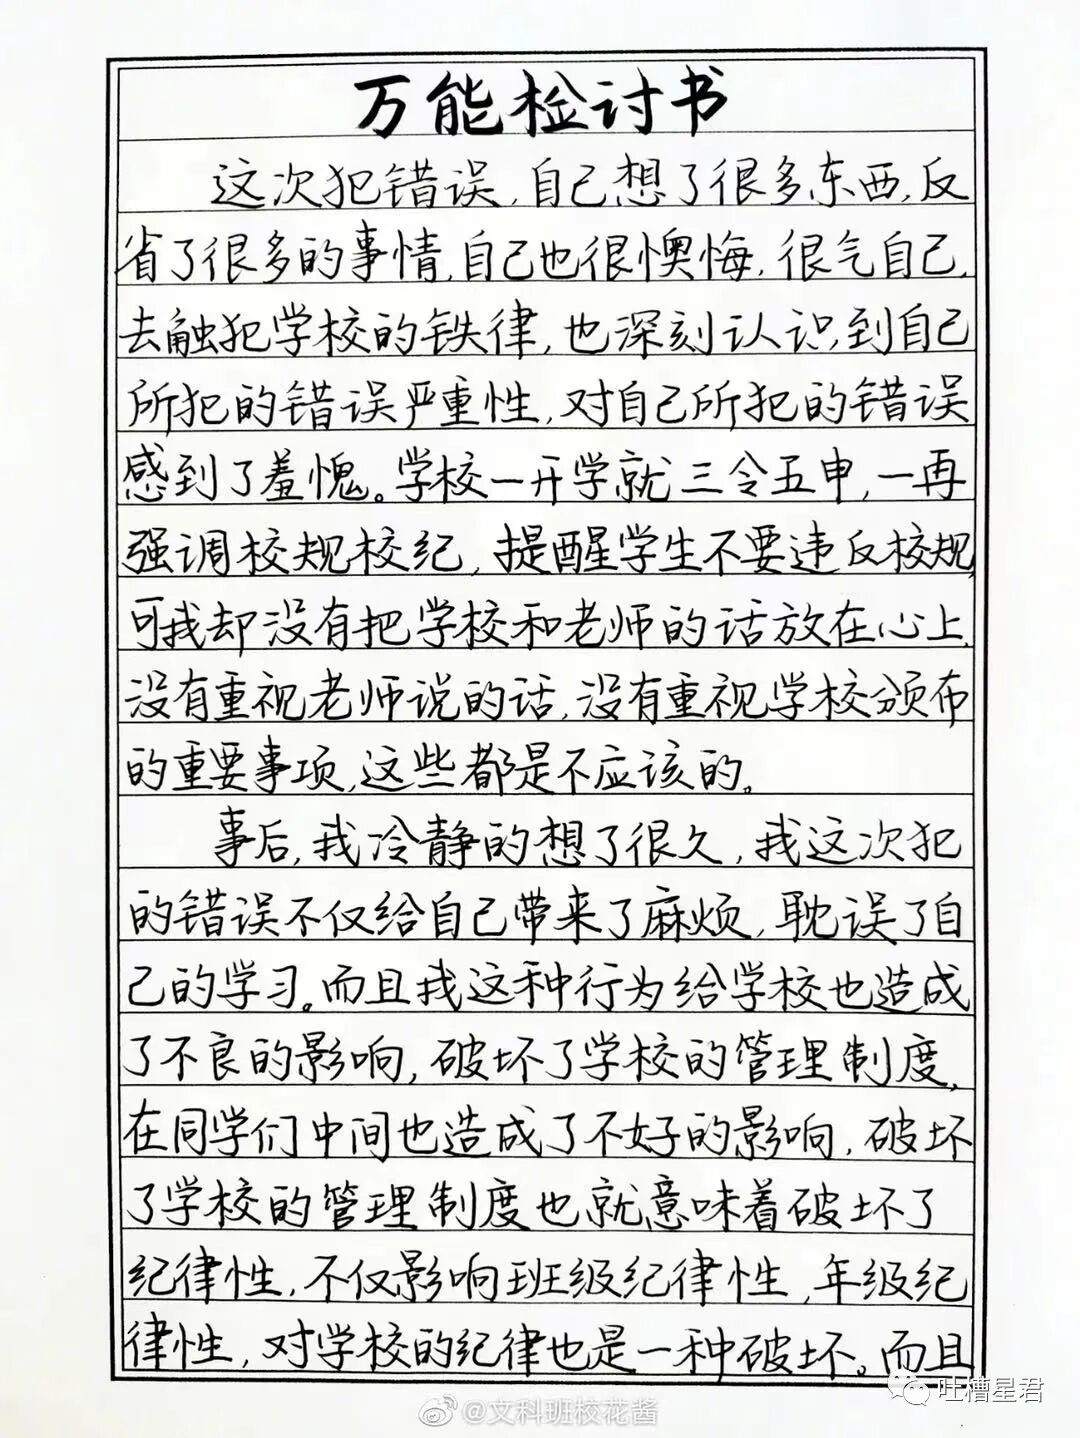 万能检讨书
这次犯错误,自己想了很多东西,反
省了很多的事情,自己也很懊悔,很气自己,
去触犯学校的铁律,也深刻认识到自己
所犯的错误严重性,对自己所犯的错误
感到了羞愧。学校一开学就三令五申,一再
强调校规校纪,提醒学生不要违反校规,
可我却没有把学校和老师的话放在心上,
没有重视老师说的话,没有重视学校颁布
的重要事项,这些都是不应该的。
事后,我冷静的想了很久,我这次犯
的错误不仅给自己带来了麻烦,耽误了自
己的学习。而且我这种行为给学校也造成
了不良的影响,破坏了学校的管理制度,
在同学们中间也造成了不好的影响,破坏
了学校的管理制度也就意味着破坏了
纪律性,不仅影响班级纪律性,年级纪
律性,对学校的纪律也是一种破坏。而且
吐槽星君
@文科班校花酱